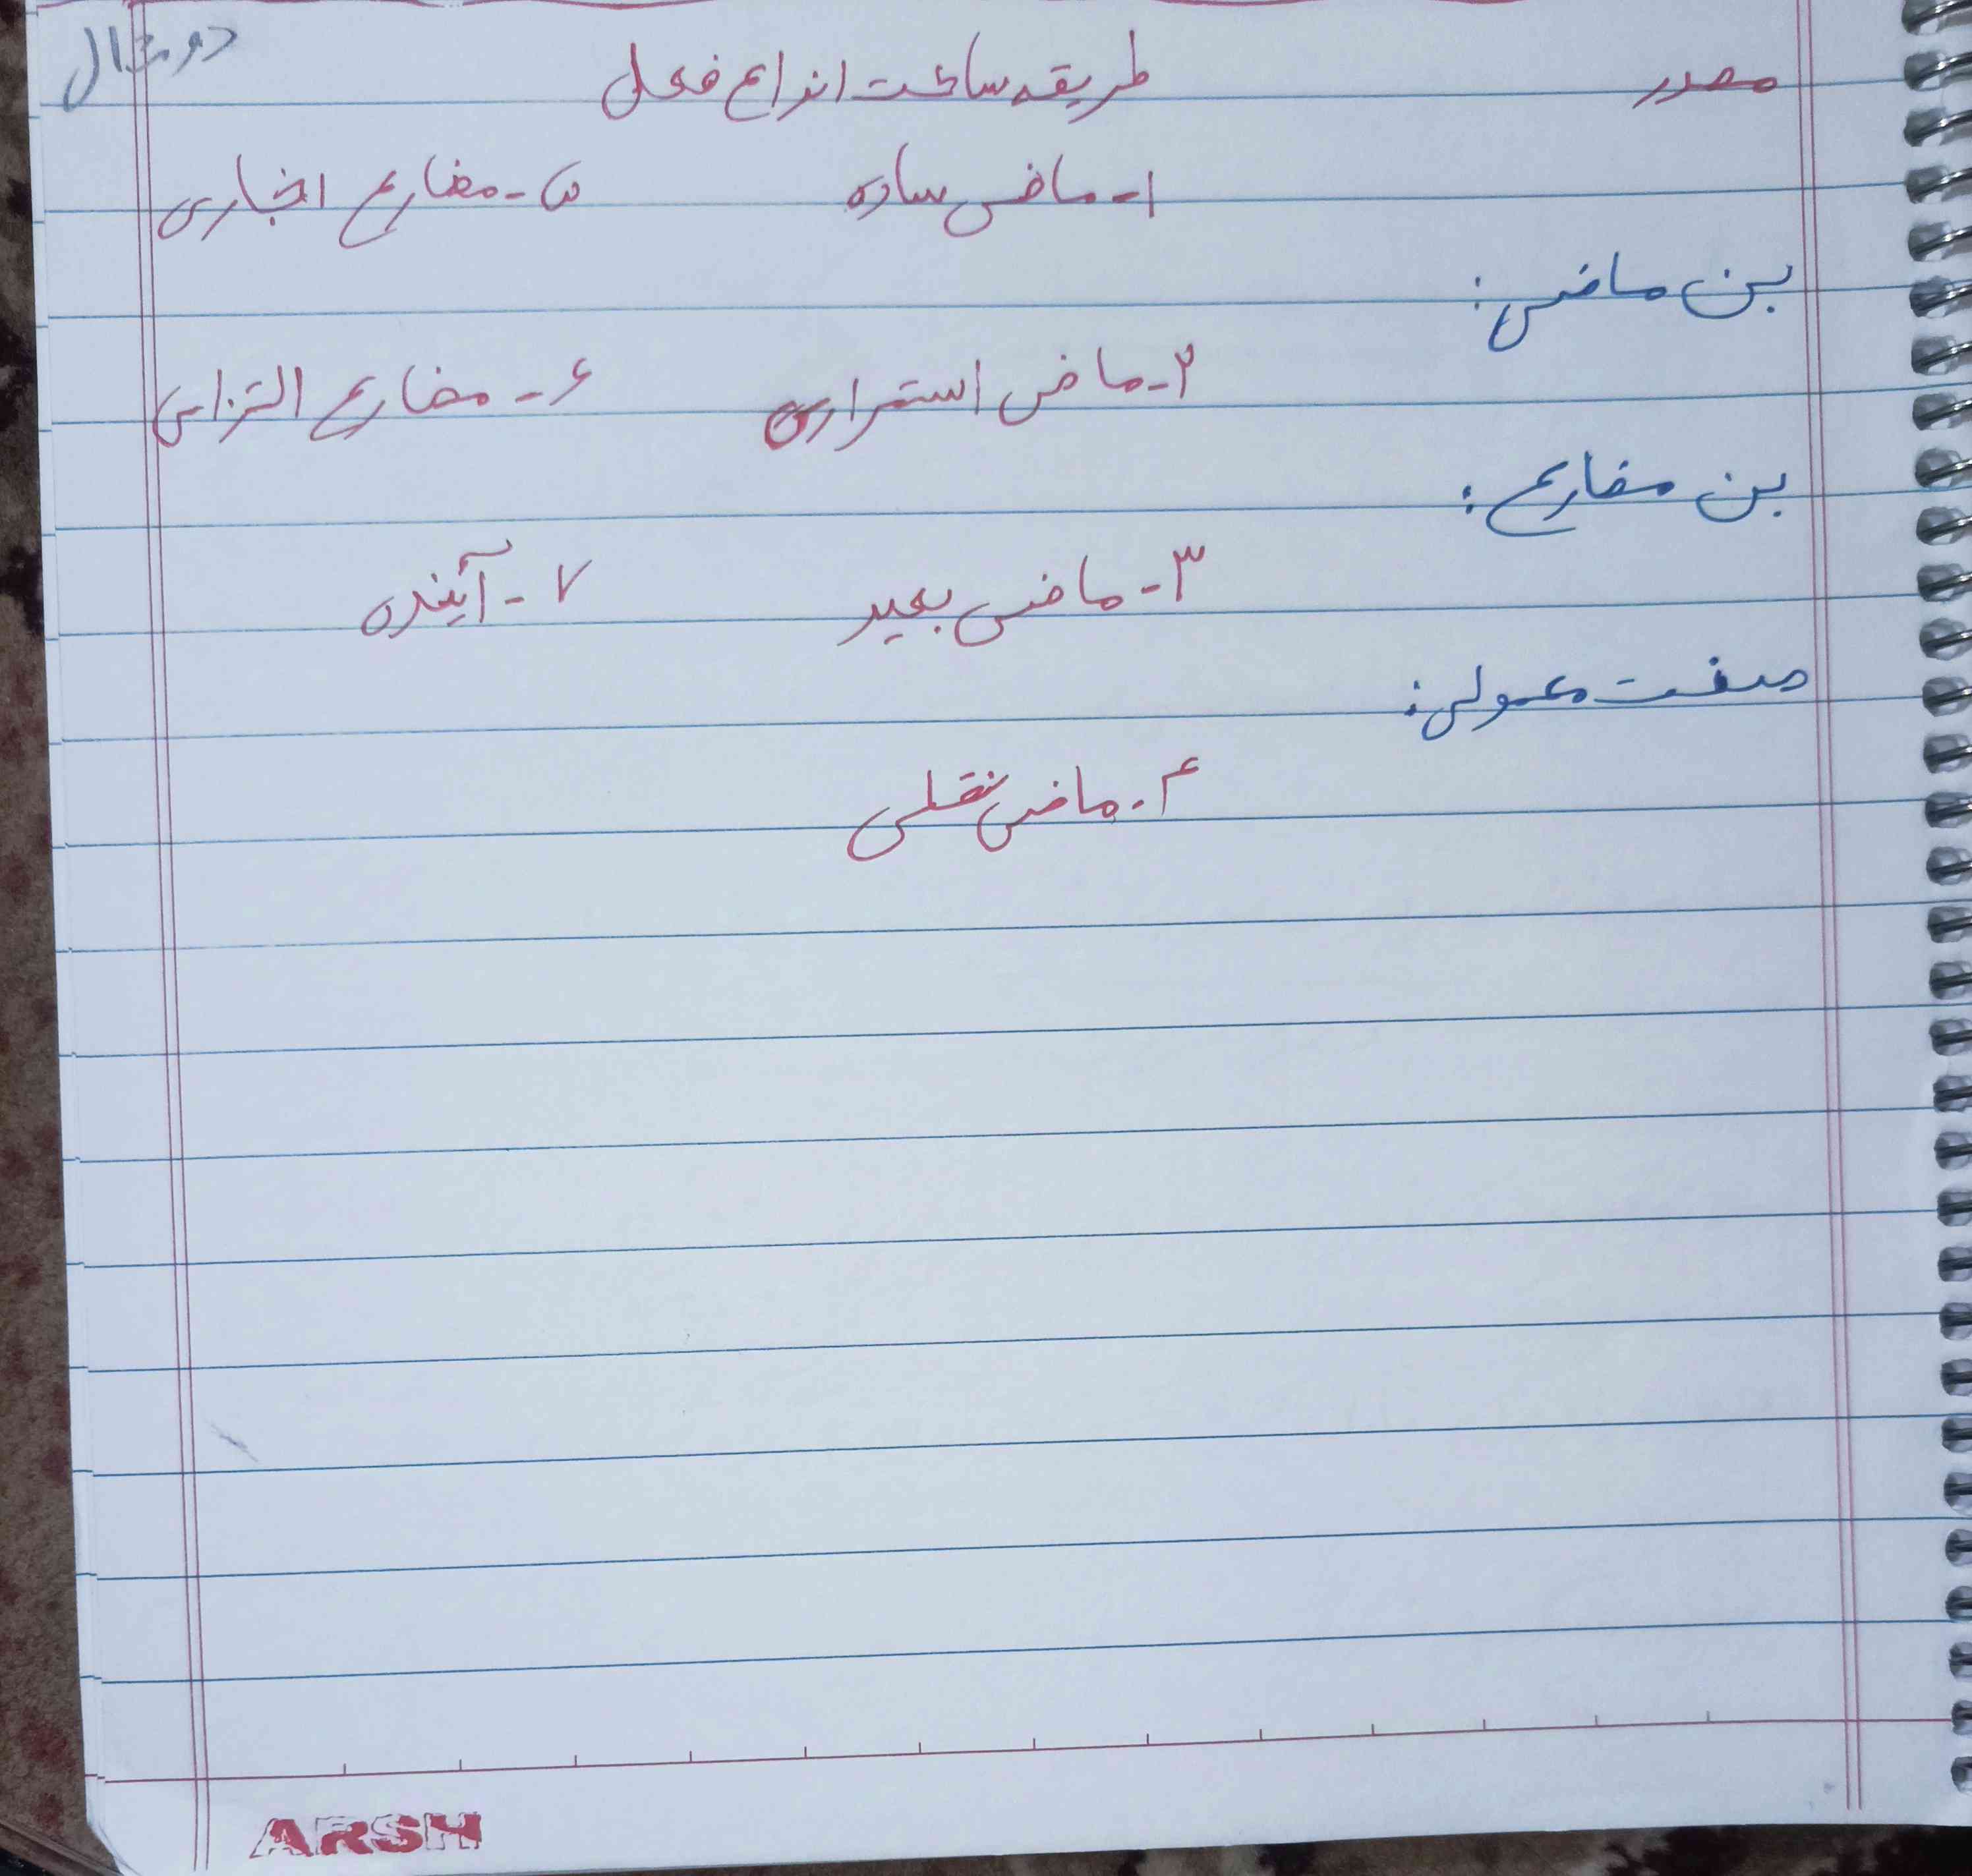 مصدر طریقه ساخت انواع فعل دو مثال
۱- ماضی ساده ۵- مضارع اخباری
بن ماضی:
۲- ماضی استمراری ۶- مضارع التزامی
بن مضارع:
۳- ماضی بعید ۷- آینده
صفت مفعولی:
۴- ماضی نقلی
ARSH